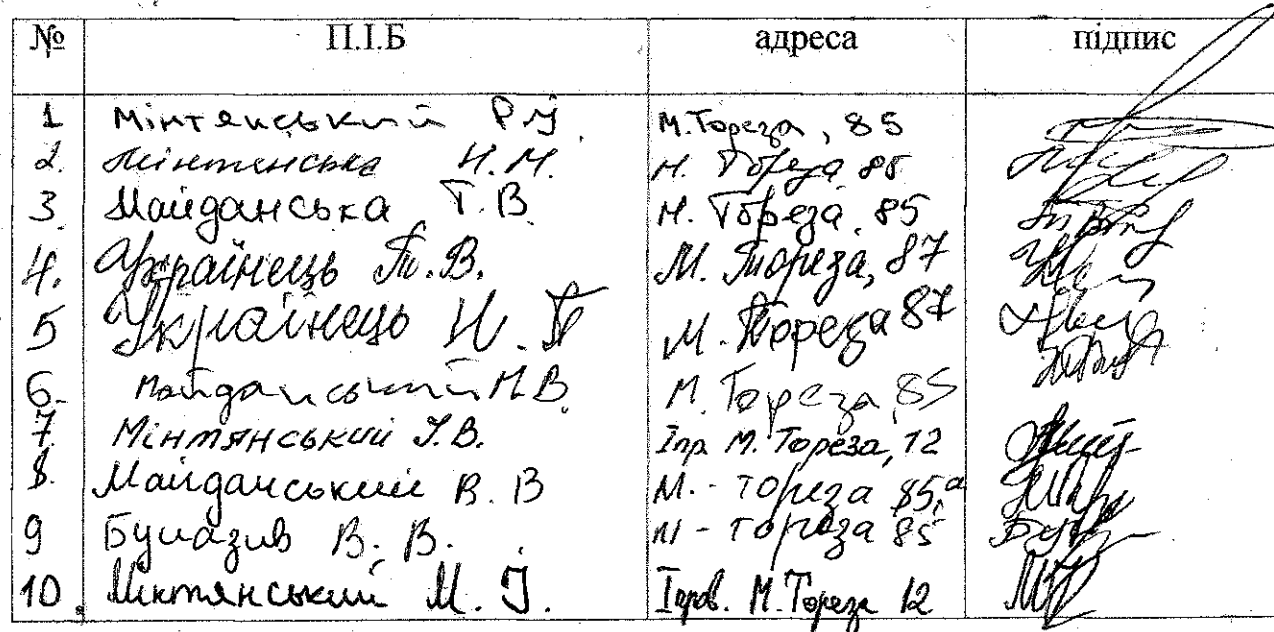 № П.І.Б адреса підпис
1 Мінтянський Р.І. М.Тореза, 85
2. Мінтянська Н.М. М. Тореза 85
3. Майданська Т.В. М. Тореза, 85
4. Українець Т.В. М. Тореза, 87
5 Українець Н.П М. Тореза 87
6. Майданський М.В. М. Тореза 85
7. Мінтянський І.В. Іпр. М. Тореза, 12
8. Майданський В.В М.-Тореза 85,а
9 В.В. М-Тореза 85
10. Мінтянський М.І. Іпров. М.Тореза 12